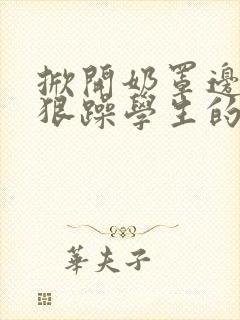 掀開奶罩邊
狠躁學生的
華夫子